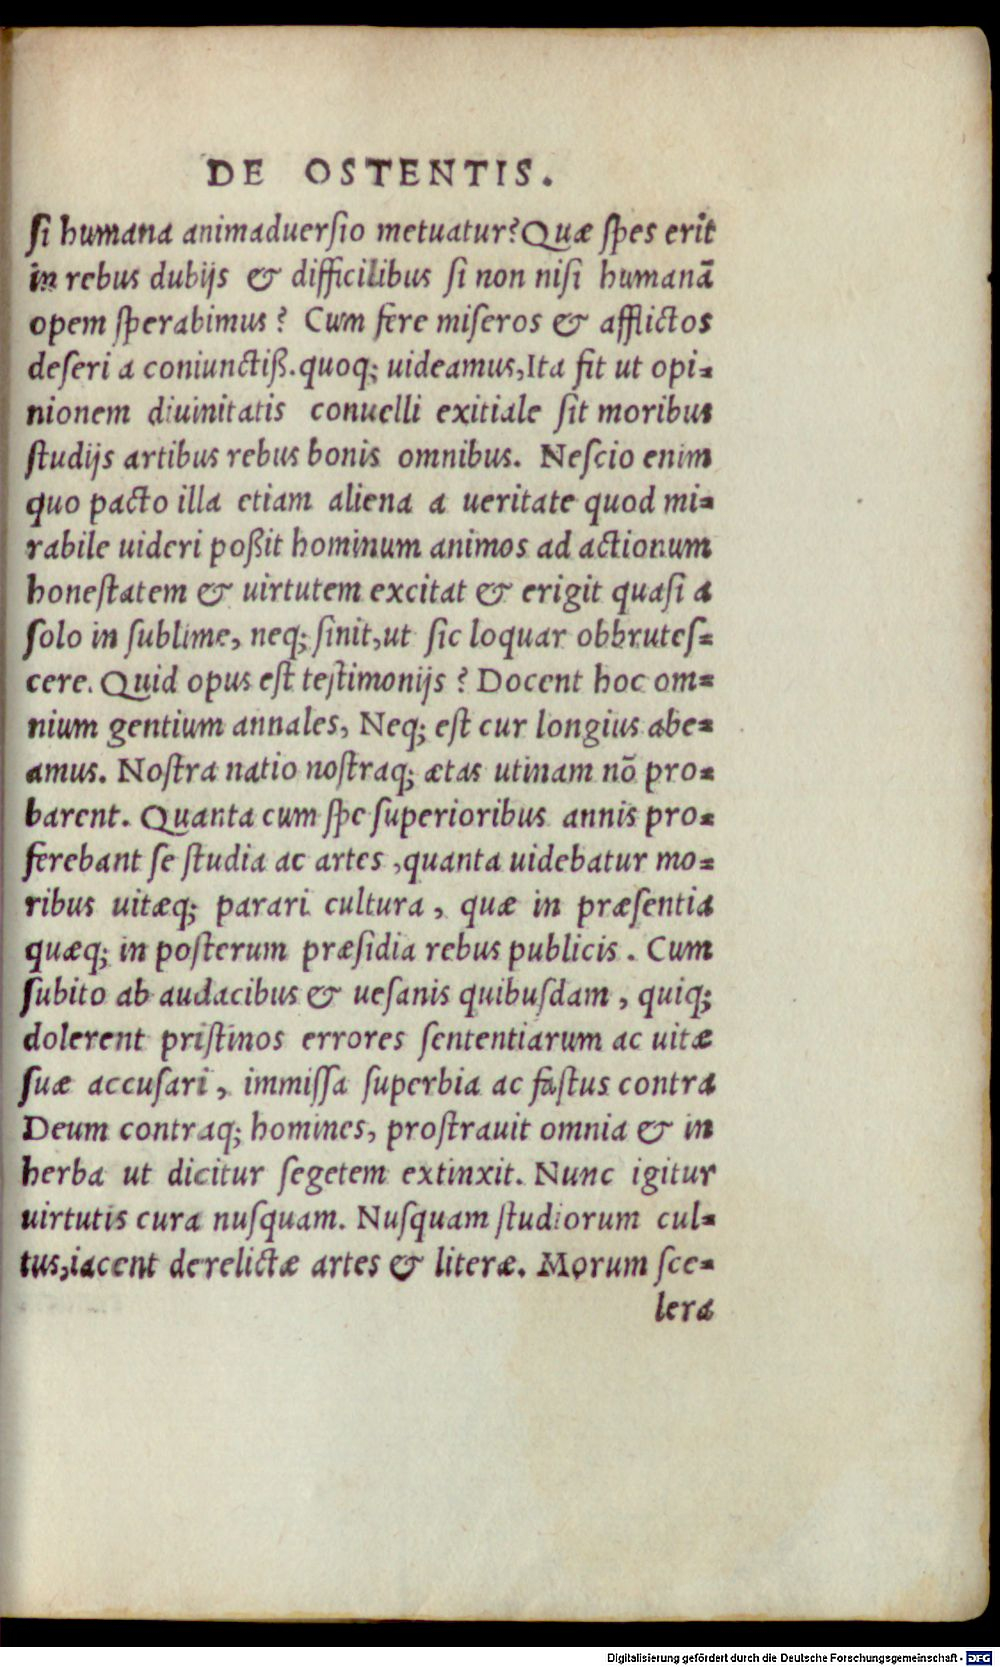 DE OSTENTIS.
ſi humana animaduerſio metuatur? Quæ ſpes erit
in rebus dubijs & difficilibus ſi non niſi humanā
opem ſperabimus? Cum fere miſeros & afflictos
deſeri a coniunctiß. quoq; uideamus, Ita fit ut opi=
nionem diuinitatis conuelli exitiale ſit moribus
ſtudijs artibus rebus bonis omnibus. Neſcio enim
quo pacto illa etiam aliena a ueritate quod mi=
rabile uideri poßit hominum animos ad actionum
honeſtatem & uirtutem excitat & erigit quaſi a
ſolo in ſublime, neq; ſinit, ut ſic loquar obbruteſ=
cere. Quid opus eſt teſtimonijs? Docent hoc om=
nium gentium annales, Neq; eſt cur longius abe=
amus. Noſtra natio noſtraq; ætas utinam nō pro=
barent. Quanta cum ſpe ſuperioribus annis pro=
ferebant ſe ſtudia ac artes, quanta uidebatur mo=
ribus uitæq; parari cultura, quæ in præſentia
quæq; in poſterum præſidia rebus publicis. Cum
ſubito ab audacibus & ueſanis quibuſdam, quiq;
dolerent priſtinos errores ſententiarum ac uitæ
ſuæ accuſari, immiſſa ſuperbia ac faſtus contra
Deum contraq; homines, proſtrauit omnia & in
herba ut dicitur ſegetem extinxit. Nunc igitur
uirtutis cura nuſquam. Nuſquam ſtudiorum cul=
tus, iacent derelictæ artes & literæ. Morum ſce=
lera
Digitalisierung gefördert durch die Deutsche Forschungsgemeinschaft - DFG